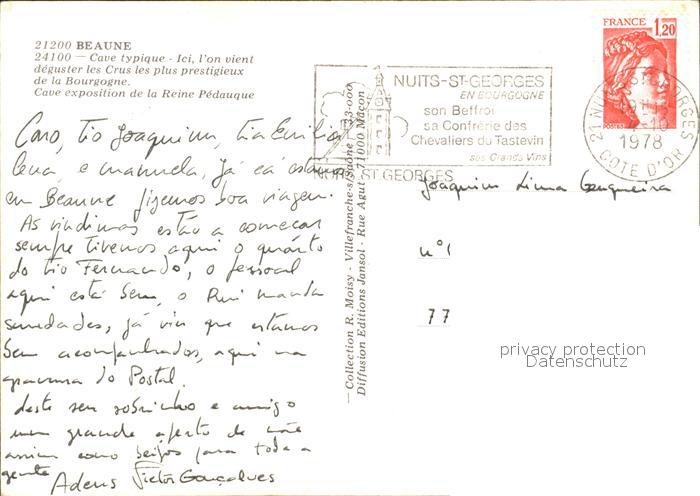 21200 BEAUNE
24100 — Cave typique - Ici, l'on vient
déguster les Crus les plus prestigieux
de la Bourgogne.
Cave exposition de la Reine Pédauque
Caro, tio Joaquim, tia Emilia
lena, e manuela, Já cá estamos
em Beaune fizemos boa viagem.
As vindimas estão a começar
sempre tivemos aqui o quarto
do tio Fernando, o pessoal
aqui está bem, o Rui manda
saudades, já vin que estamos
bem acompanhados, aqui na
gravura do Postal.
deste seu sobrinho e amigo
um grande aperto de mão
assim como beijos para toda a
gente Adeus Victor Gonçalves
—Collection R. Moisy - Villefranche-s/Saône
Diffusion Editions Jansol - Rue Agut - 71000 Mâcon
NUITS-ST-GEORGES
EN BOURGOGNE
son Beffroi
sa Confrérie des
Chevaliers du Tastevin
ses Grands Vins
NUITS-ST GEORGES
FRANCE 1,20
POSTES
21 NUITS ST GEORGES
1978
COTE D'OR
Joaquim Lima
nº1
77
privacy protection
Datenschutz